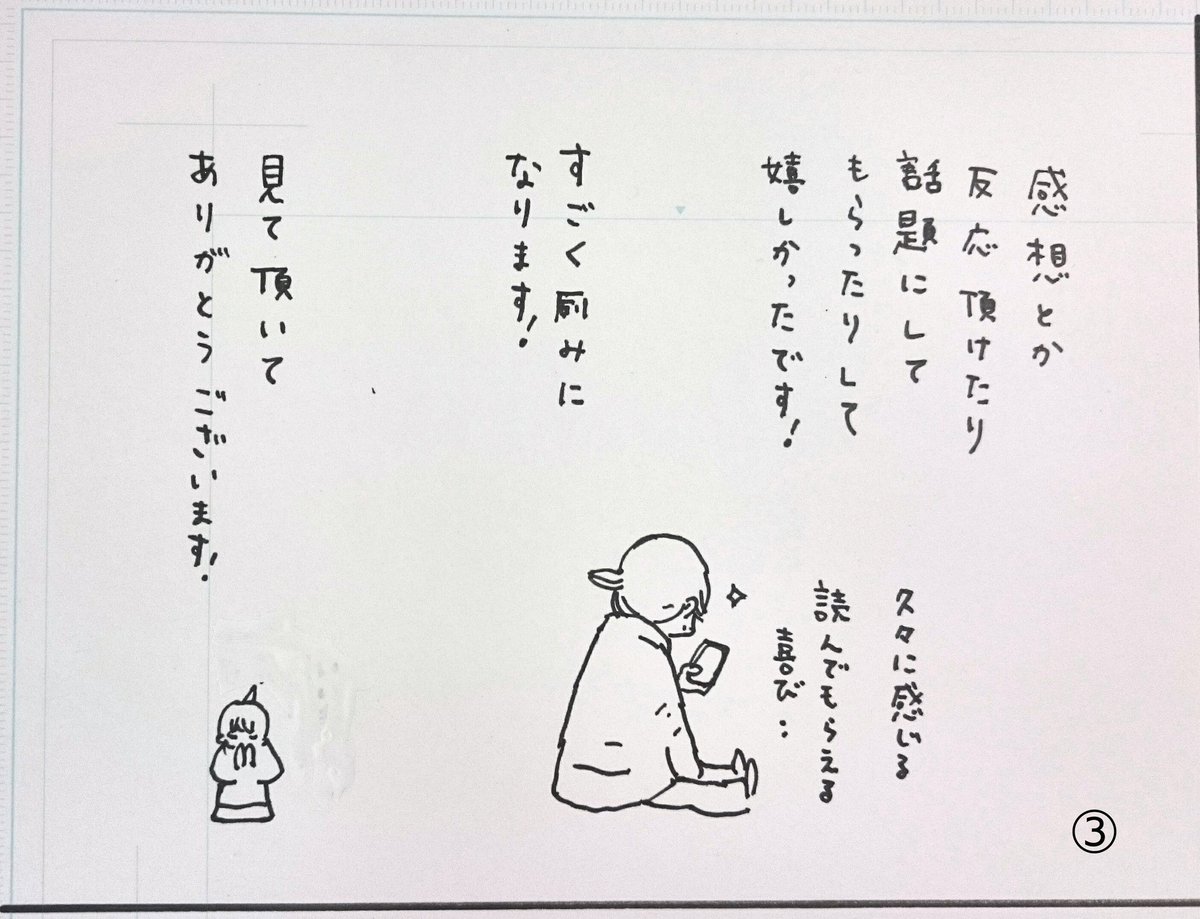 感想とか
反応頂けたり
話題にして
もらったりして
嬉しかったです!
久々に感じる
読んでもらえる
喜び・・
すごく励みに
なります!
見て頂いて
ありがとうございます!
③